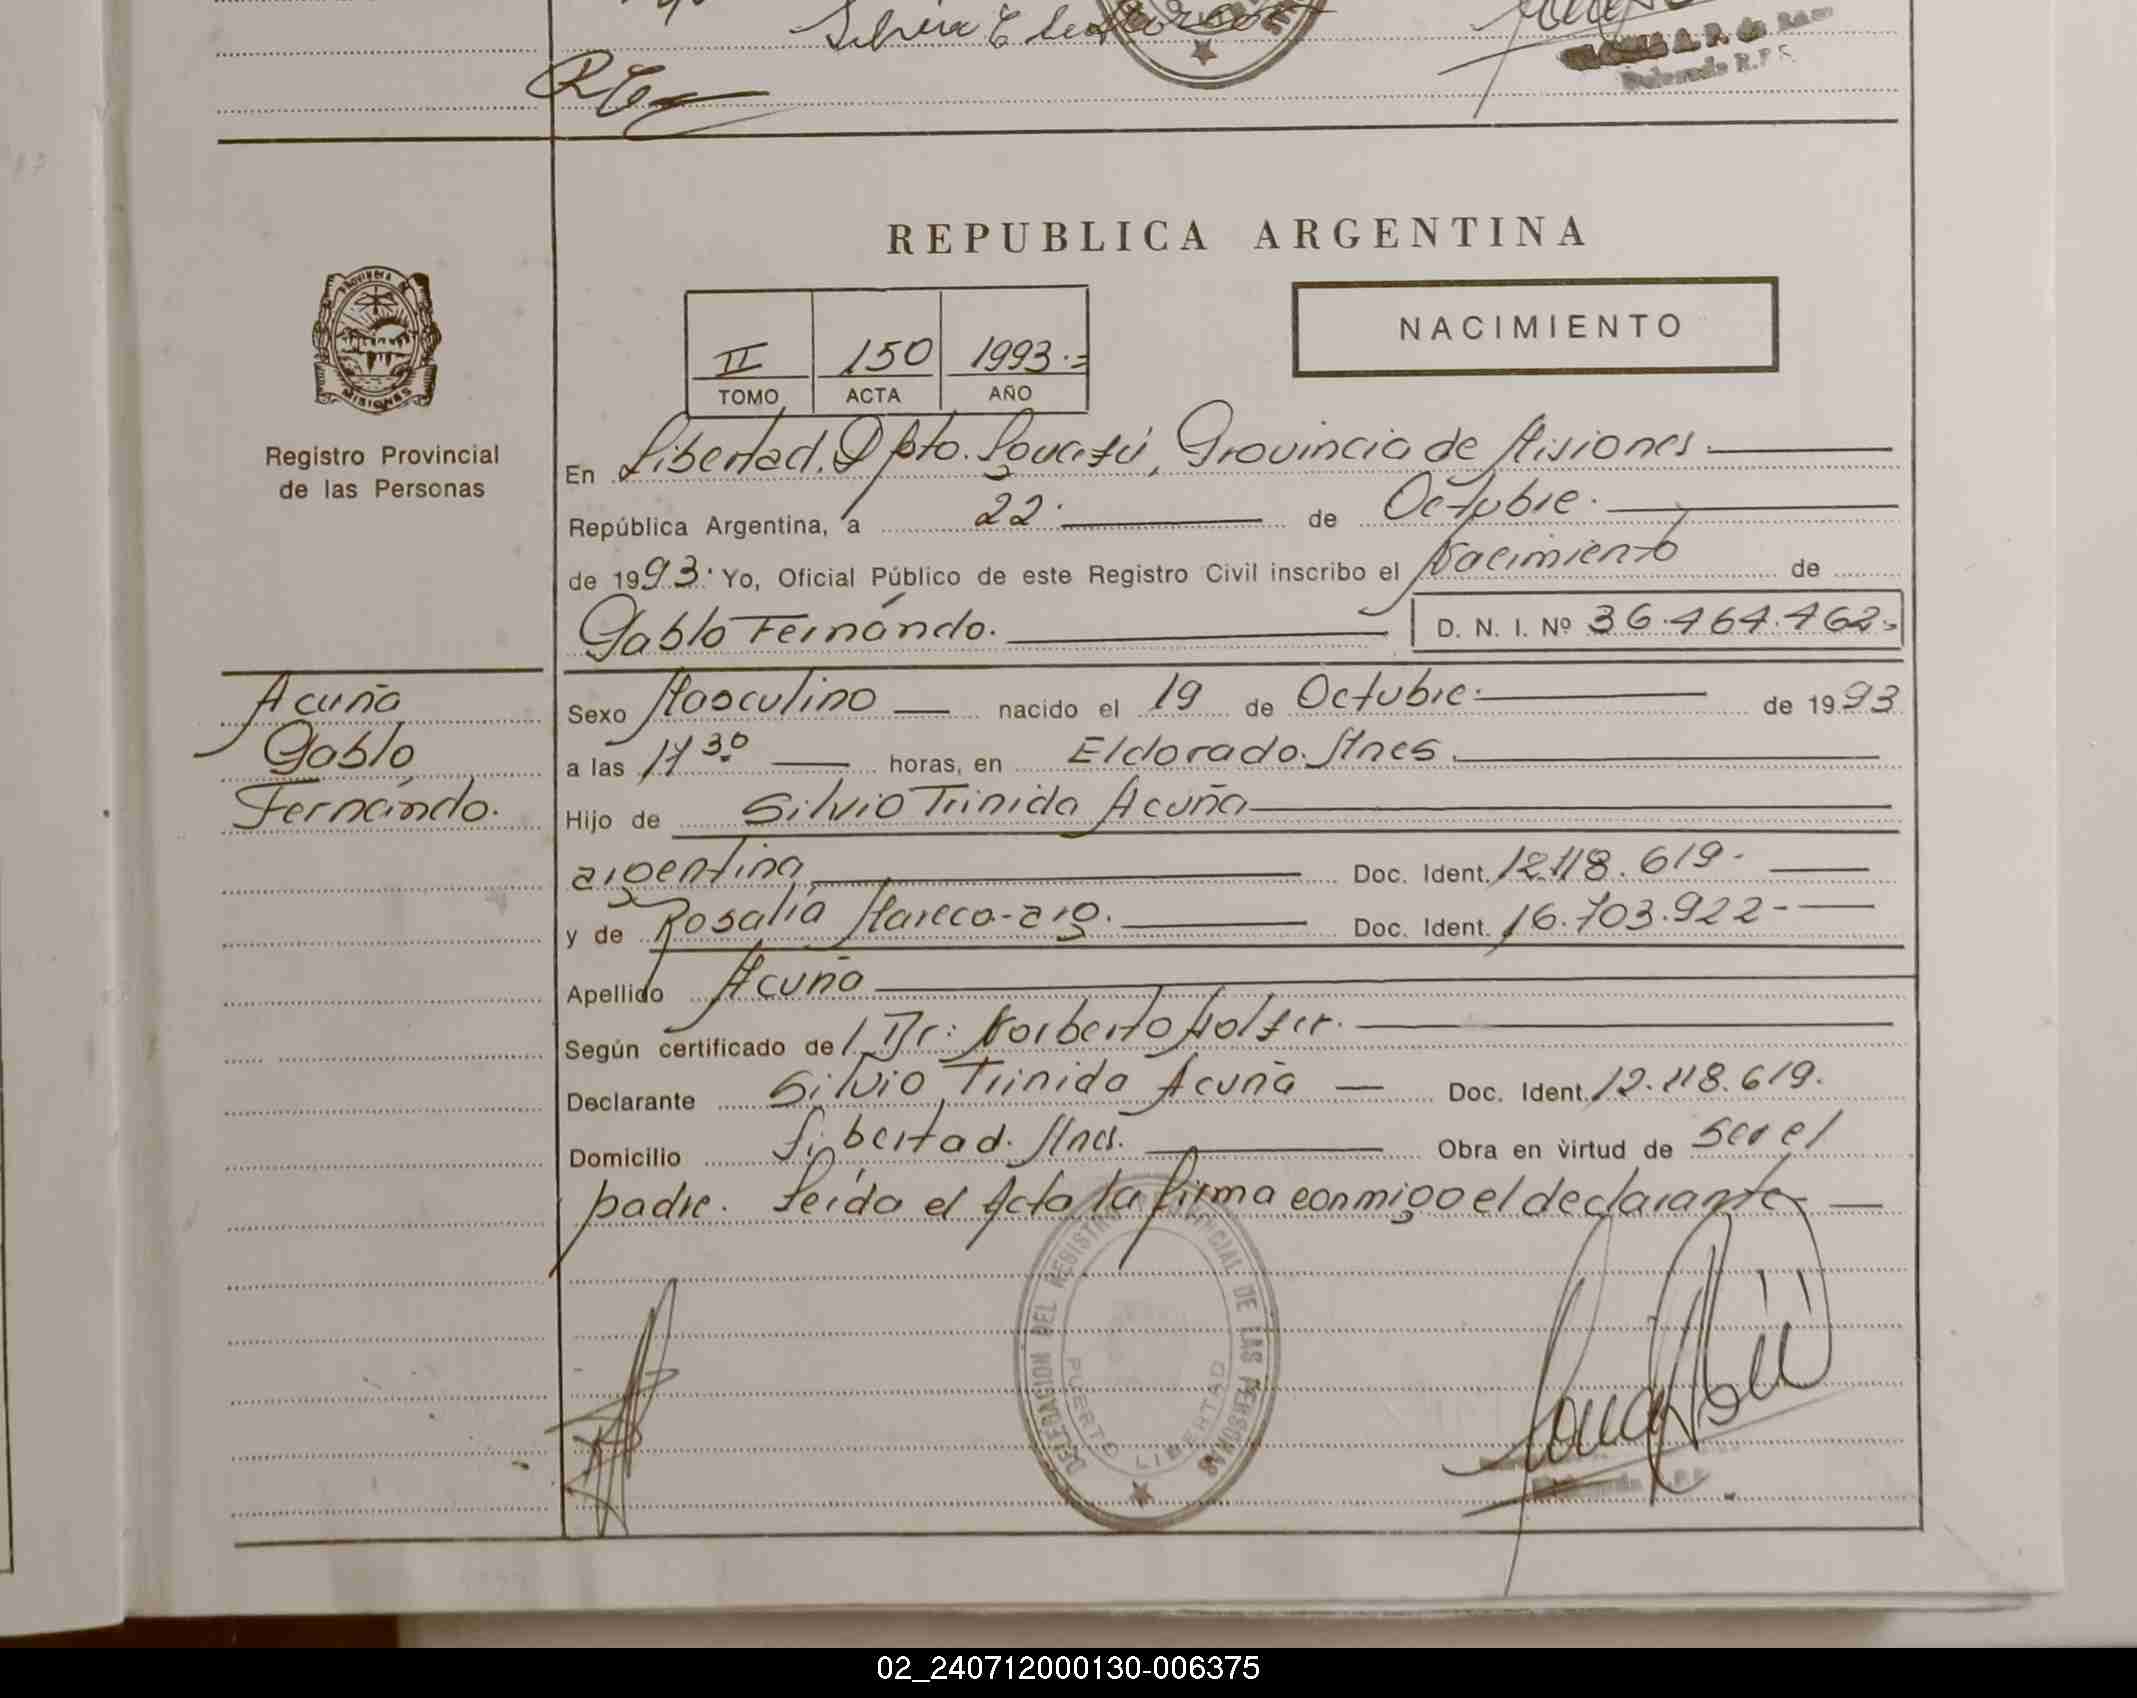 REPUBLICA ARGENTINA
NACIMIENTO
II 150 1993.=
TOMO ACTA AÑO
PROVINCIA DE
MISIONES
Registro Provincial
de las Personas
En Libertad, Dpto. Iguazú, Provincia de Misiones
República Argentina, a 22. de Octubre.
de 1993. Yo, Oficial Público de este Registro Civil inscribo el Nacimiento de
Pablo Fernándo. D. N. I. Nº 36.464.462.
Acuña
Pablo
Fernándo.
Sexo Masculino nacido el 19 de Octubre. de 1993
a las 17 30 horas, en Eldorado. Mnes.
Hijo de Silvio Trinida Acuña
argentina Doc. Ident. 12.118.619.-
y de Rosalia Mareco-arg. Doc. Ident. 16.703.922-
Apellido Acuña
Según certificado del Dr: Norberto
Declarante Silvio Trinida Acuña Doc. Ident. 12.118.619.
Domicilio Libertad. Mnes. Obra en virtud de ser el
padre. Leída el Acta la firma conmigo el declarante
DELEGACION DEL REGISTRO PROVINCIAL DE LAS PERSONAS
PUERTO LIBERTAD
02_240712000130-006375